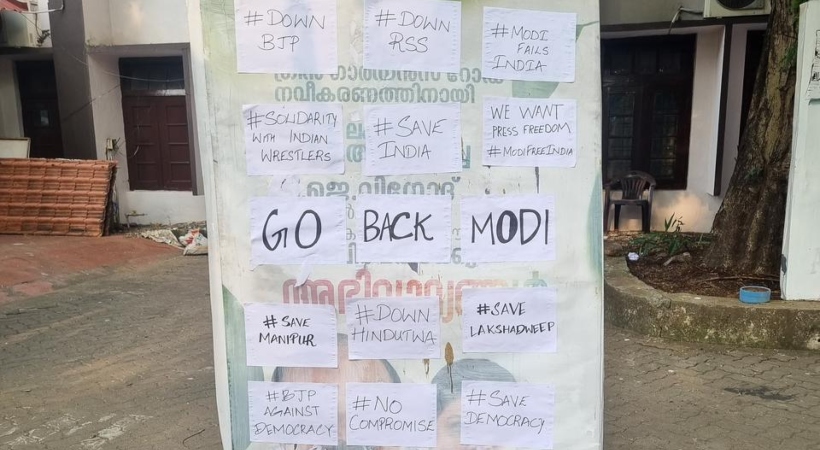 #DOWN
BJP
#DOWN
RSS
#MODI
FAILS
INDIA
ഗാർഡൻസ് റോഡ്
നവീകരണത്തിനായി
#SOLIDARITY
WITH INDIAN
WRESTLERS
#SAVE
INDIA
WE WANT
PRESS FREEDOM
#MODIFREEINDIA
ജെ.വിനോദ്
GO
BACK
MODI
അഭിവാദ്യങ്ങൾ
#SAVE
MANIPUR
#DOWN
HINDUTWA
#SAVE
LAKSHADWEEP
#BJP
AGAINST
DEMOCRACY
#NO
COMPROMISE
#SAVE
DEMOCRACY